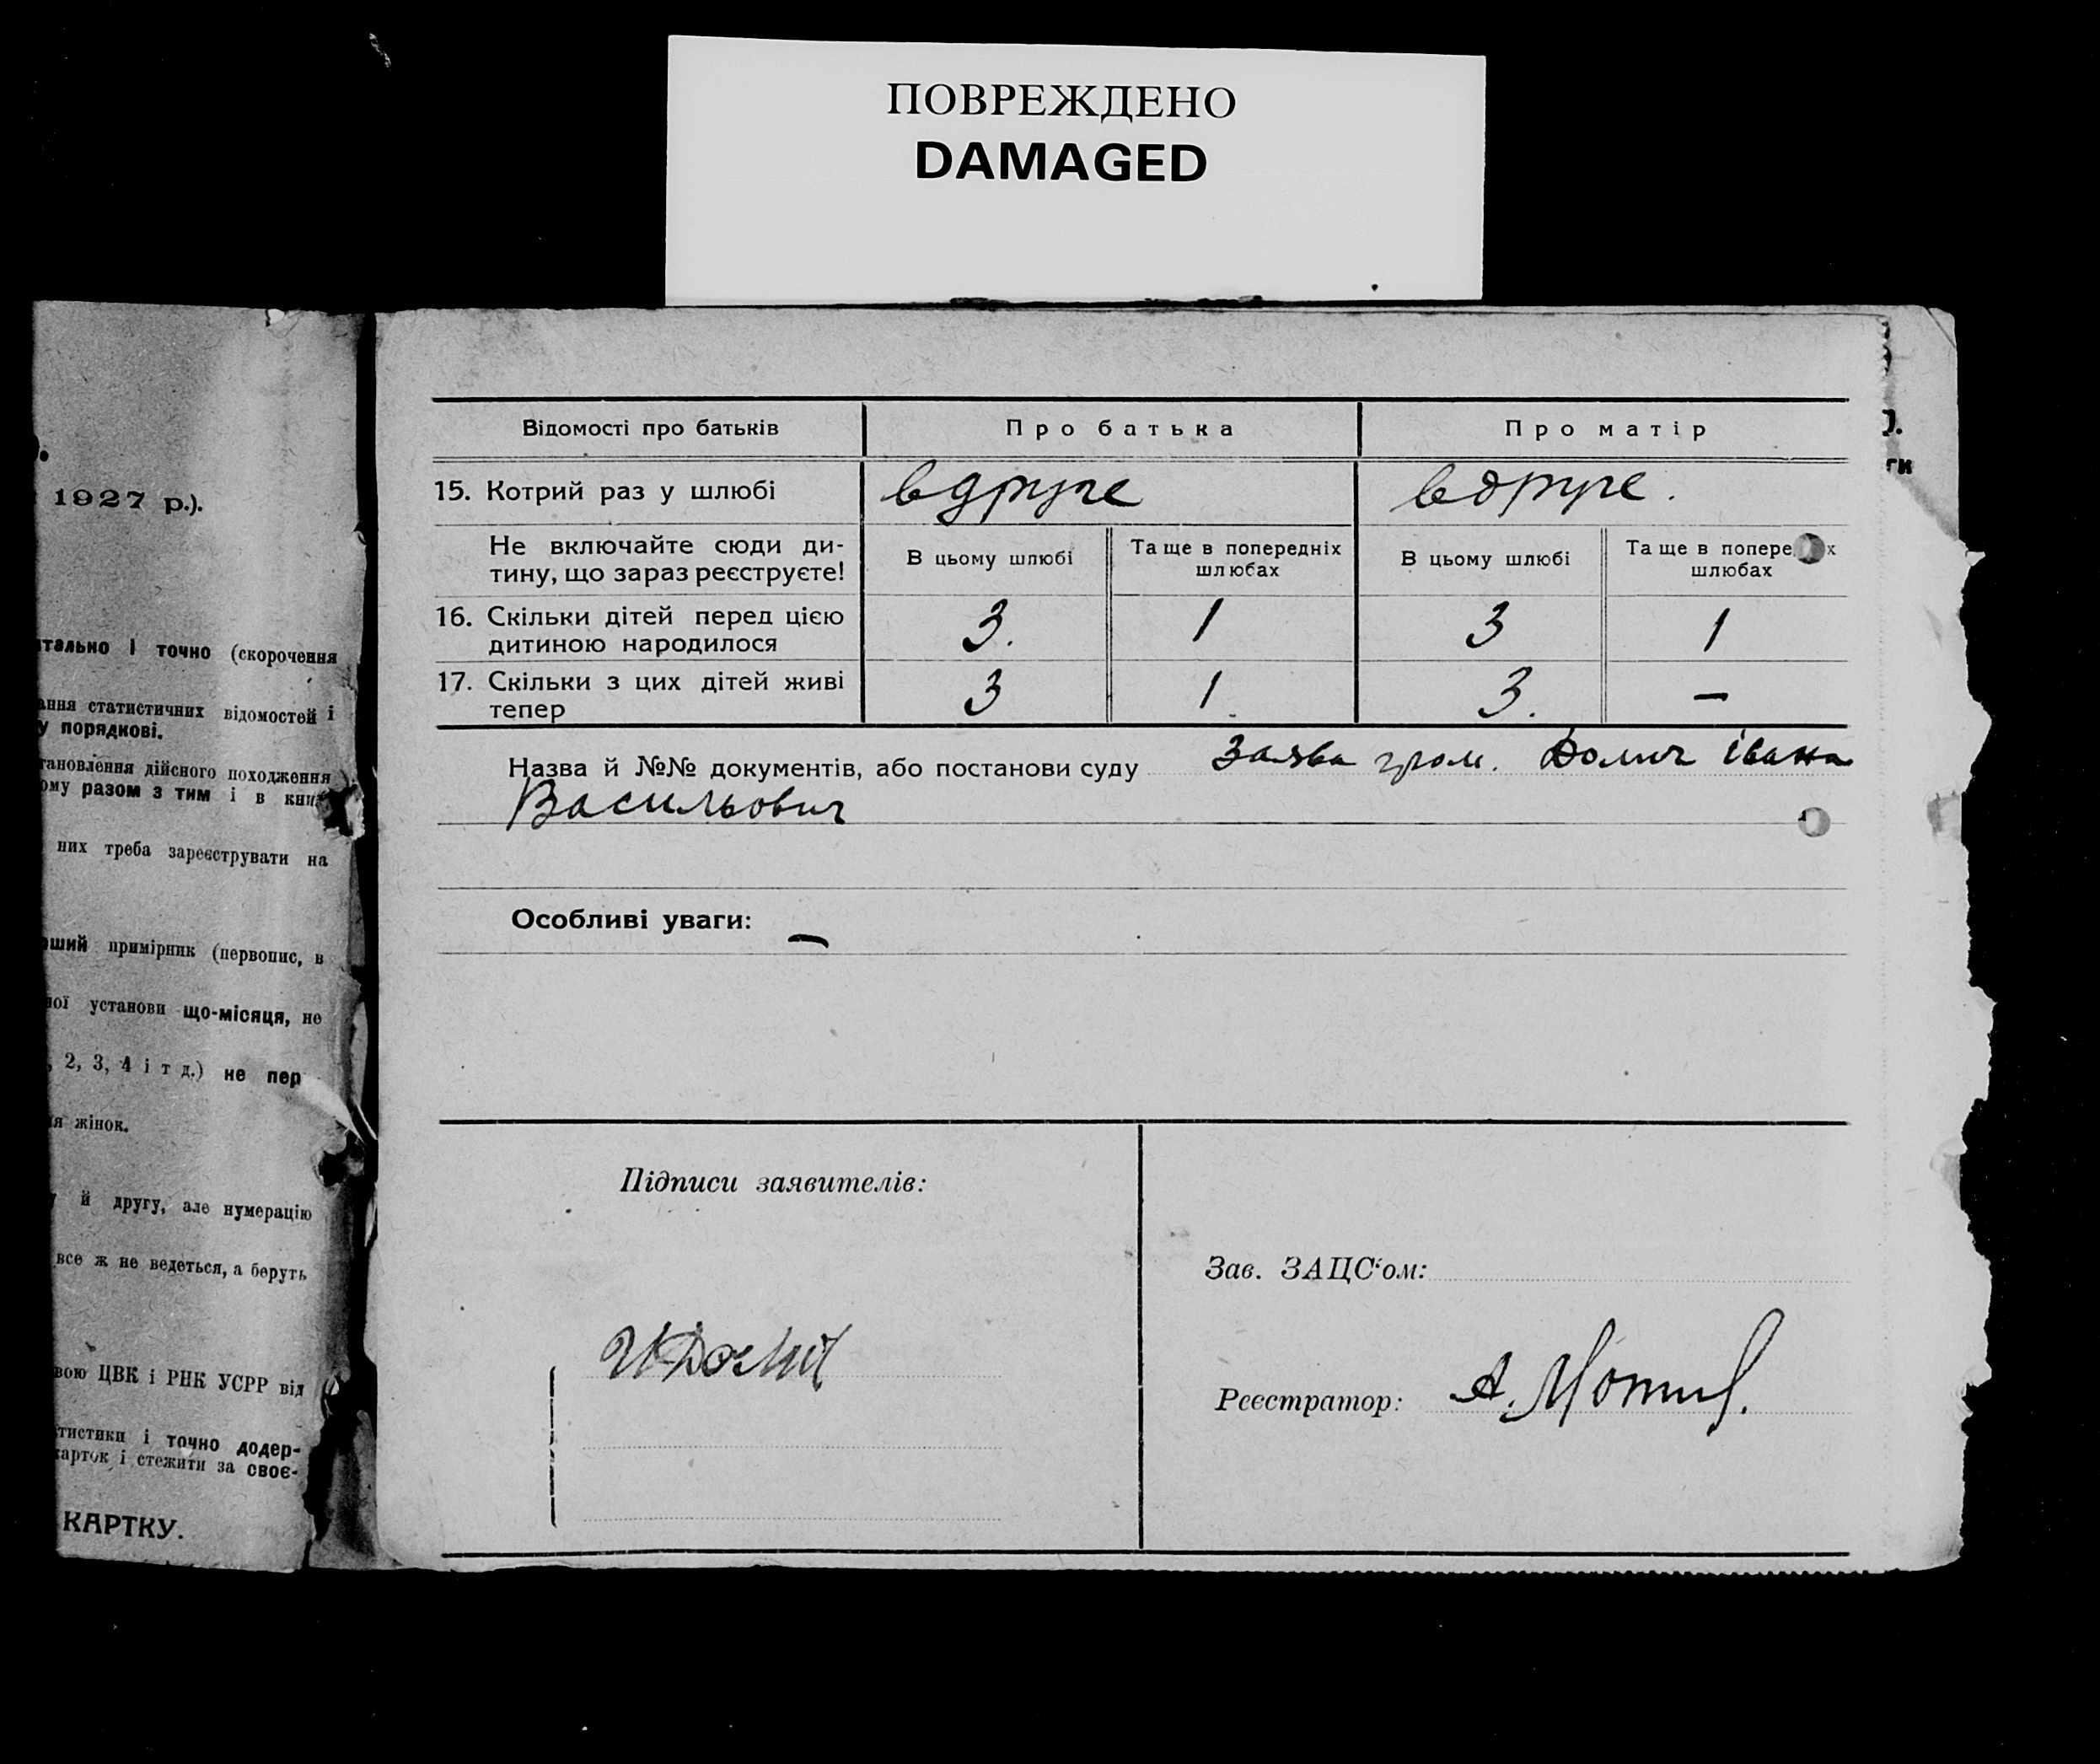 ПОВРЕЖДЕНО
DAMAGED
).
1927 р.).
тально і точно (скорочення
ання статистичних відомостей і
у порядкові.
тановлення дійсного походження
ому разом з тим і в кни
них треба зареєструвати на
рший примірник (первопис, в
ної установи що-місяця, не
, 2, 3, 4 і т д.) не пер
ля жінок.
й другу, але нумерацію
все ж не ведеться, а беруть
вою ЦВК і РНК УСРР від
тистики і точно додер-
карток і стежити за своє-
КАРТКУ.
Відомості про батьків Про батька Про матір
15. Котрий раз у шлюбі вдруге вдруге.
Не включайте сюди ди-
тину, що зараз реєструєте!
В цьому шлюбі Та ще в попередніх
шлюбах
В цьому шлюбі Та ще в попере х
шлюбах
16. Скільки дітей перед цією
дитиною народилося 3. 1 3 1
17. Скільки з цих дітей живі
тепер 3 1. 3. –
Назва й №№ документів, або постанови суду Заява гром. Долич Івана
Васильович
Особливі уваги: –
Підписи заявителів:
Зав. ЗАЦС‘ом:
Реєстратор: А.
).
ги